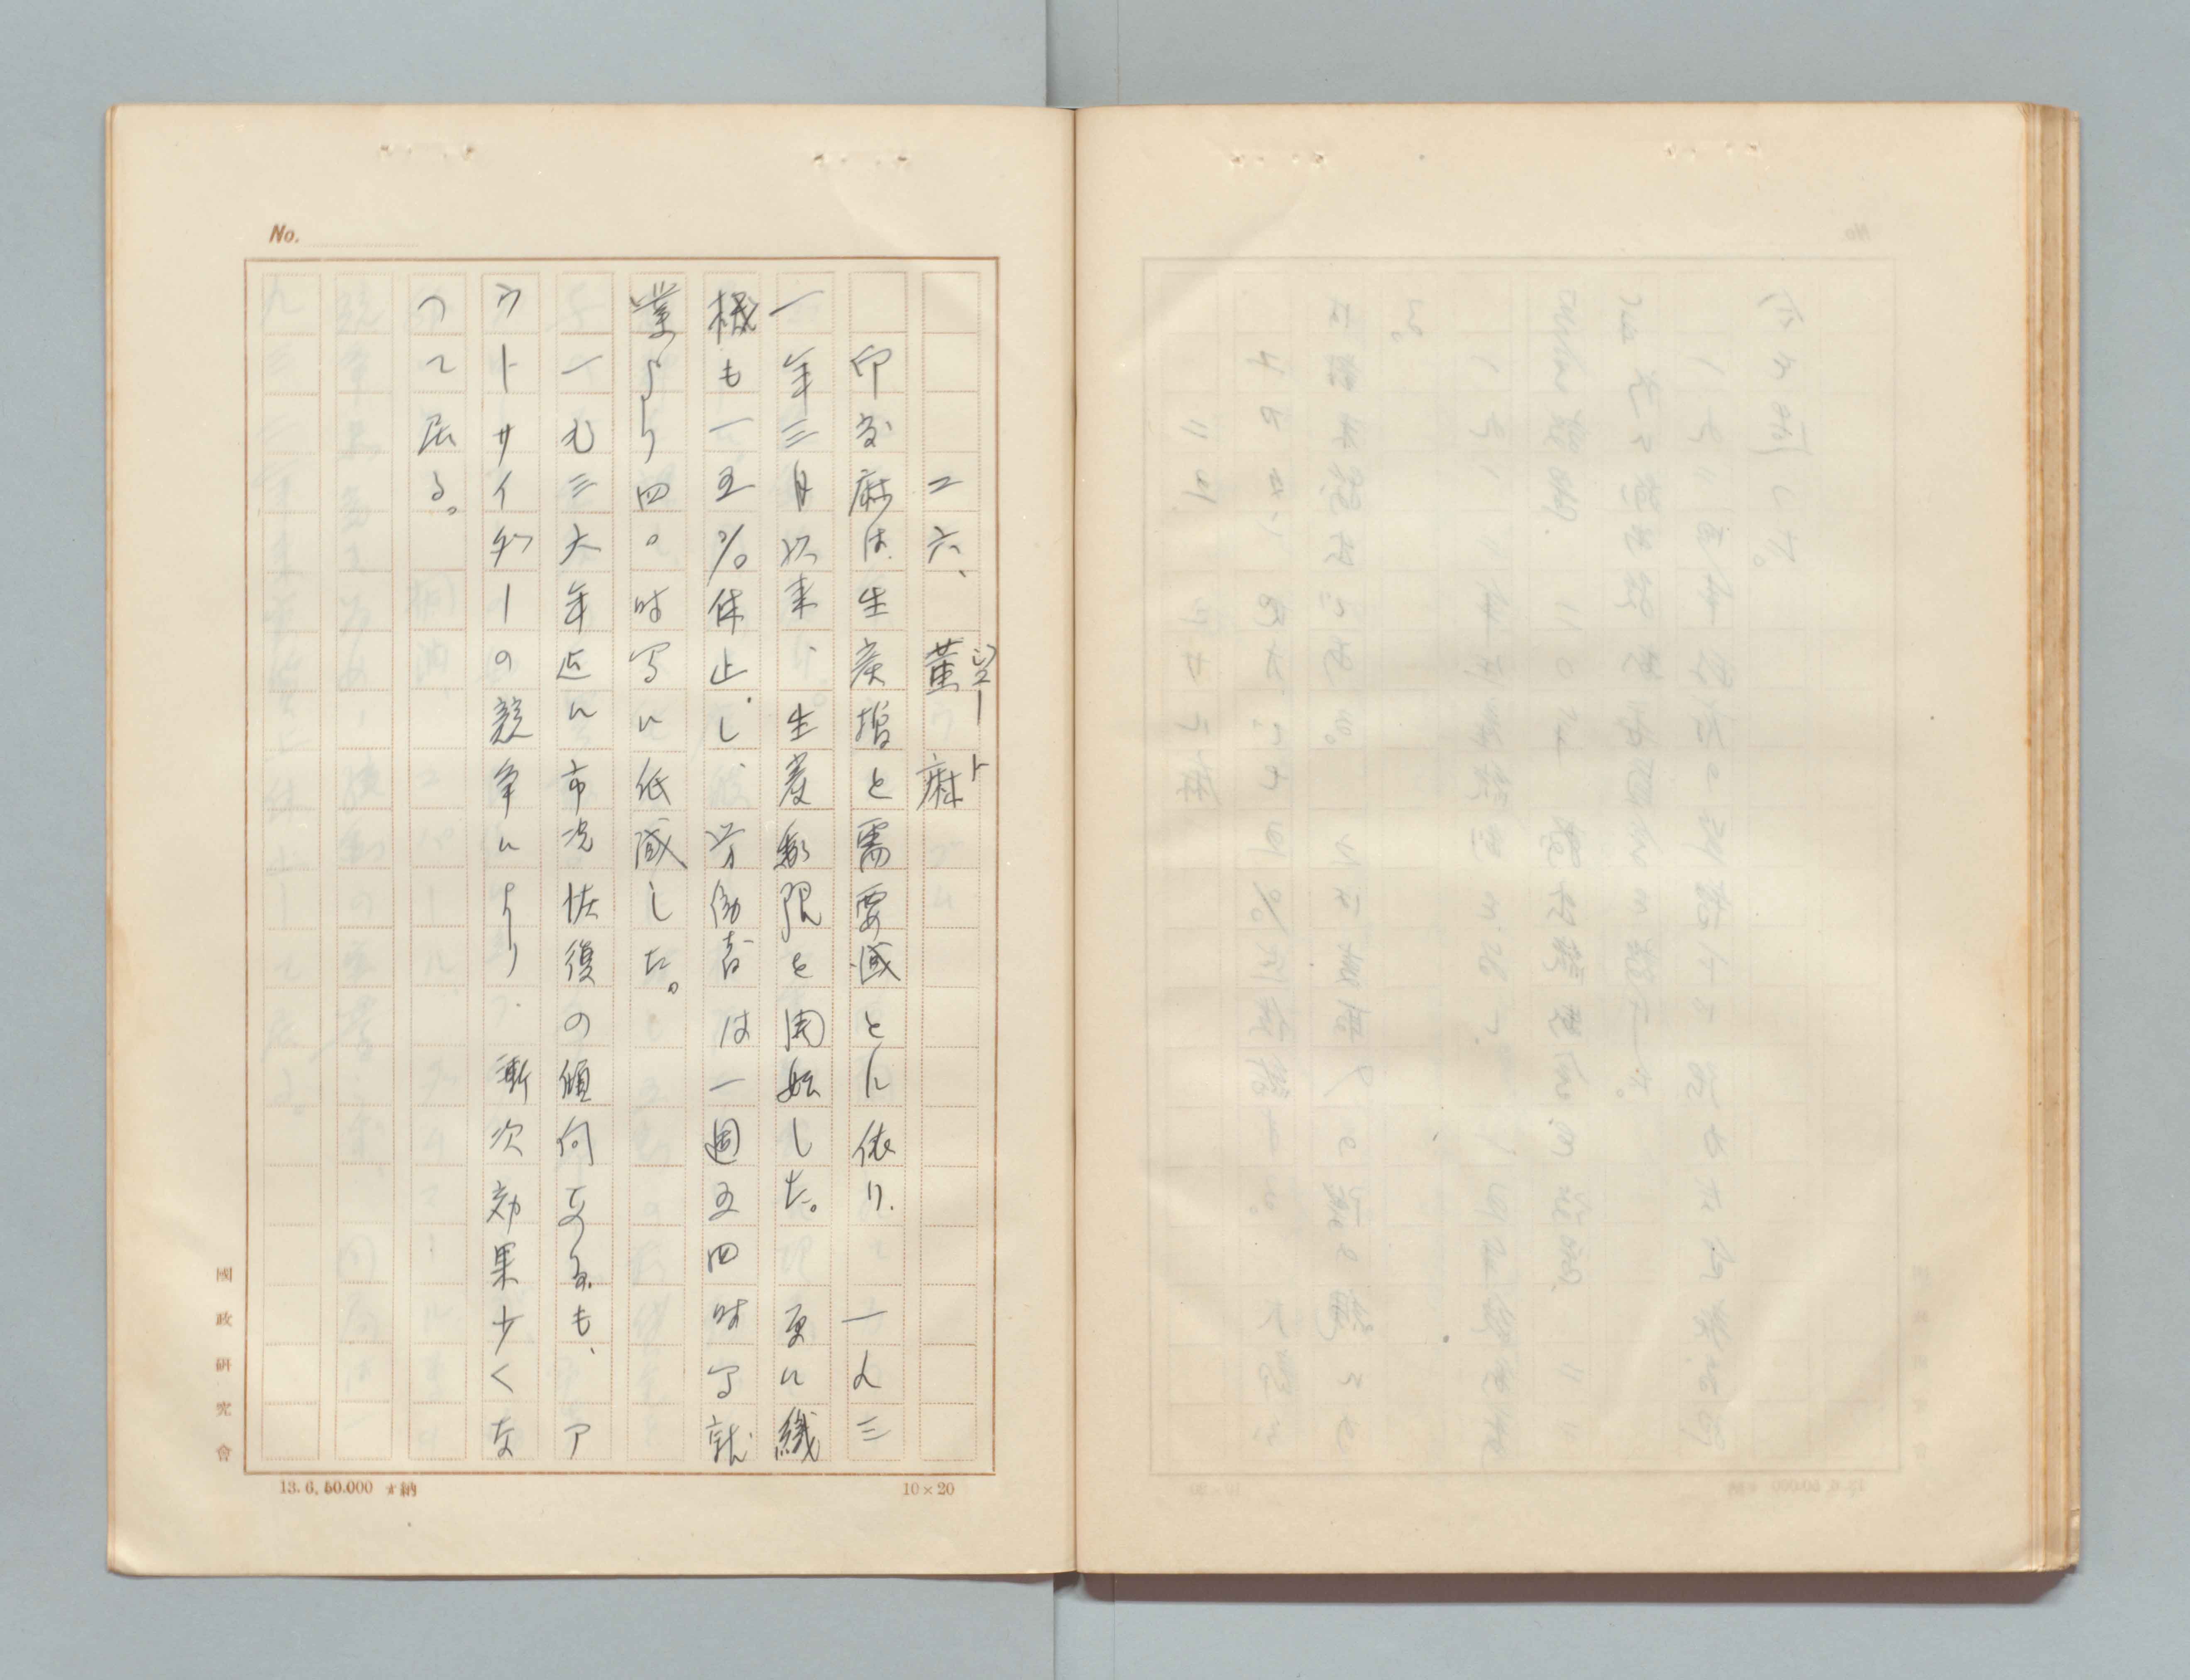 No.
二六、黄麻
ジュート
印度麻は生産増と需要減とに依り、一九三
一年三月以来、生産制限を開始した。更に織
機も一五%休止し、労働者は一週五四時間就
業より四〇時間に低減した。
一九三六年近に市況恢復の傾向あるも、ア
ウトサイダーの競争により、漸次効果少くな
つて居る。
國政研究會
13.6. 50.000 納
10×20